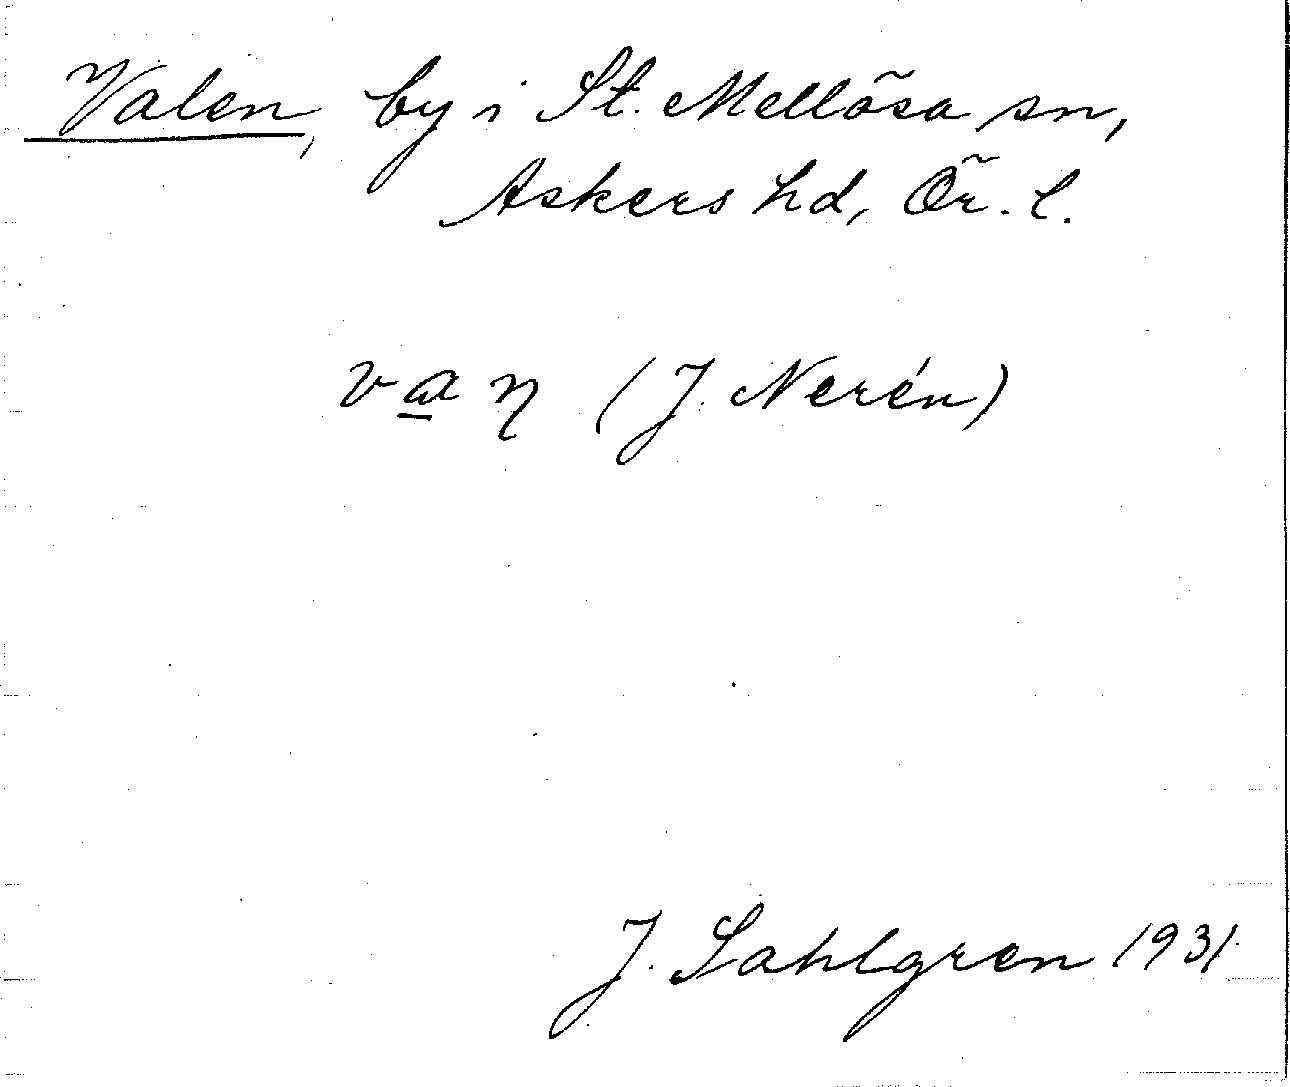 Valen, by i St. Mellösa sn,
Askers hd, Ör. l.
(J. Nerén)
J. Sahlgren 1931.